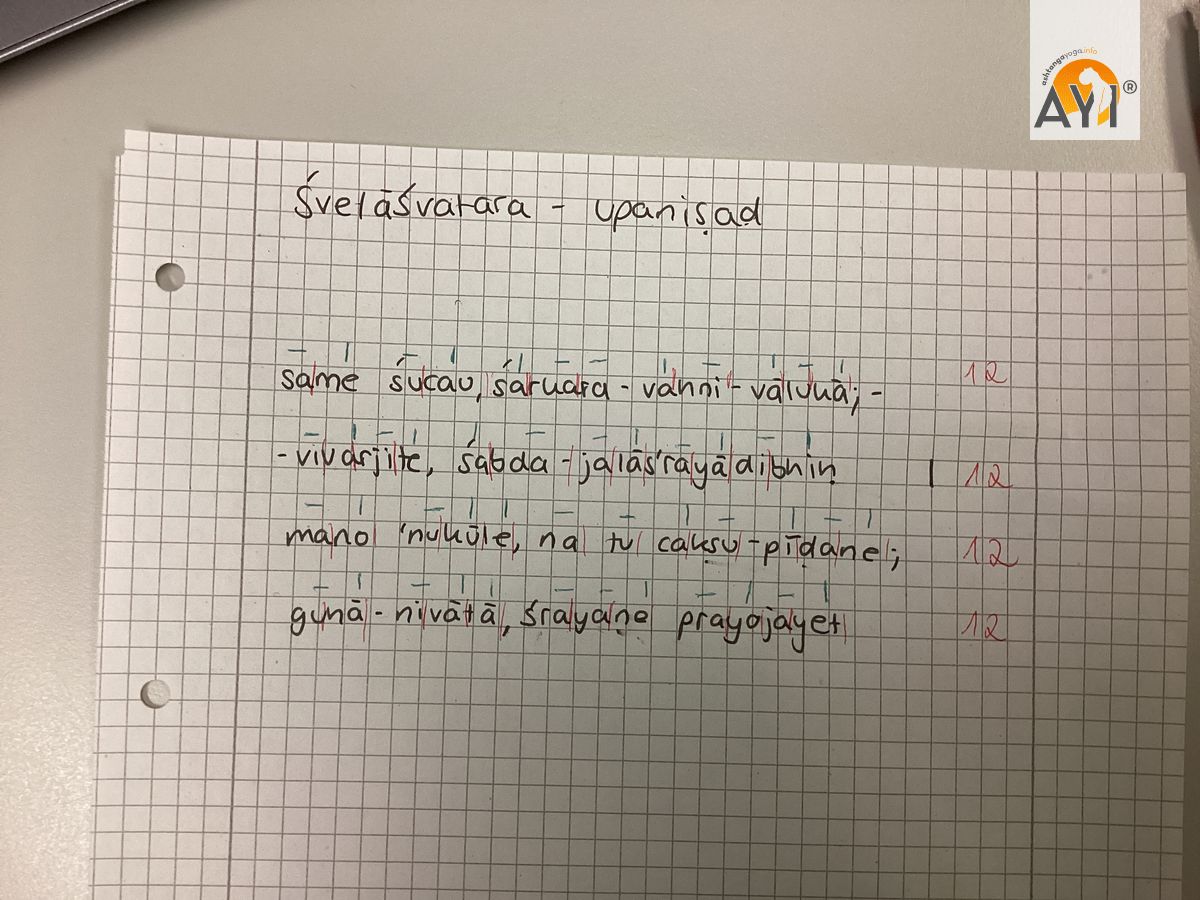 ashtangayoga.info
AYI®
Śvetāśvatara - upaniṣad
same śucau, śarkara - vahni - vālukā; - 12
- vivarjite, śabda - jalāśrayādibhiḥ | 12
mano 'nukūle, na tu cakṣu - pīḍane; 12
guhā - nivātā, śrayaṇe prayojayet 12